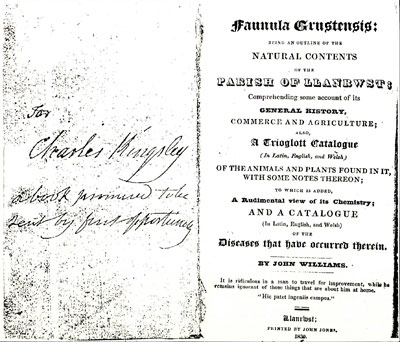 For
Charles Kingsley
a book promised to be
sent by first opportunity
Faunula Grustensis:
BEING AN OUTLINE OF THE
NATURAL CONTENTS
OF THE
PARISH OF LLANRWST;
Comprehending some account of its
GENERAL HISTORY,
COMMERCE AND AGRICULTURE;
ALSO,
A Trioglott Catalogue
(In Latin, English, and Welsh)
OF THE ANIMALS AND PLANTS FOUND IN IT,
WITH SOME NOTES THEREON;
TO WHICH IS ADDED,
A Rudimental view of its Chemistry;
AND A CATALOGUE
(In Latin, English, and Welsh)
OF THE
Diseases that have occurred therein.
BY JOHN WILLIAMS.
It is ridiculous in a man to travel for improvement, while he
remains ignorant of those things that are about him at home.
"Hic patet ingeniis campus."
Llanrwst:
PRINTED BY JOHN JONES,
1830.